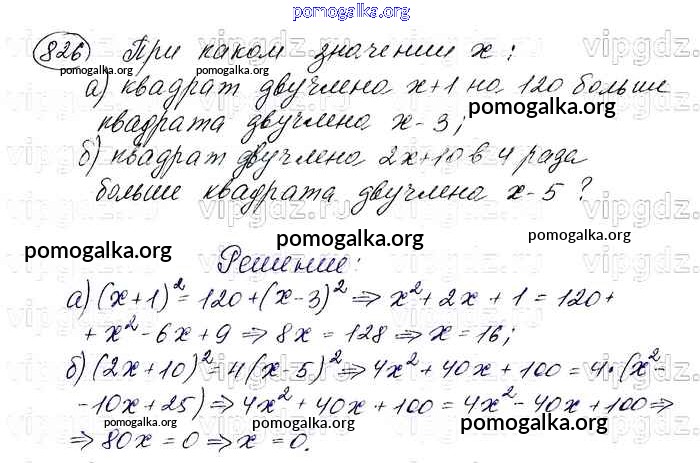 pomogalka.org
826 При каком значении x:
а) квадрат двучлена x+1 на 120 больше
квадрата двучлена x-3;
б) квадрат двучлена 2x+10 в 4 раза
больше квадрата двучлена x-5?
Решение:
а) (x+1)²=120+(x-3)² ⇒ x²+2x+1=120+
+x²-6x+9 ⇒ 8x=128 ⇒ x=16;
б) (2x+10)²=4(x-5)² ⇒ 4x²+40x+100=4·(x²-
-10x+25) ⇒ 4x²+40x+100=4x²-40x+100 ⇒
⇒ 80x=0 ⇒ x=0.
pomogalka.org
pomogalka.org
pomogalka.org
pomogalka.org
pomogalka.org
pomogalka.org
pomogalka.org
pomogalka.org
pomogalka.org